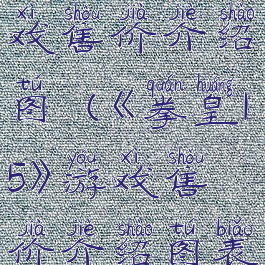 xì shòu jià jiè shào
戏售价介绍
tú quán huáng
图(《拳皇1
yóu xì shòu
5》游戏售
jià jiè shào tú biǎo
价介绍图表